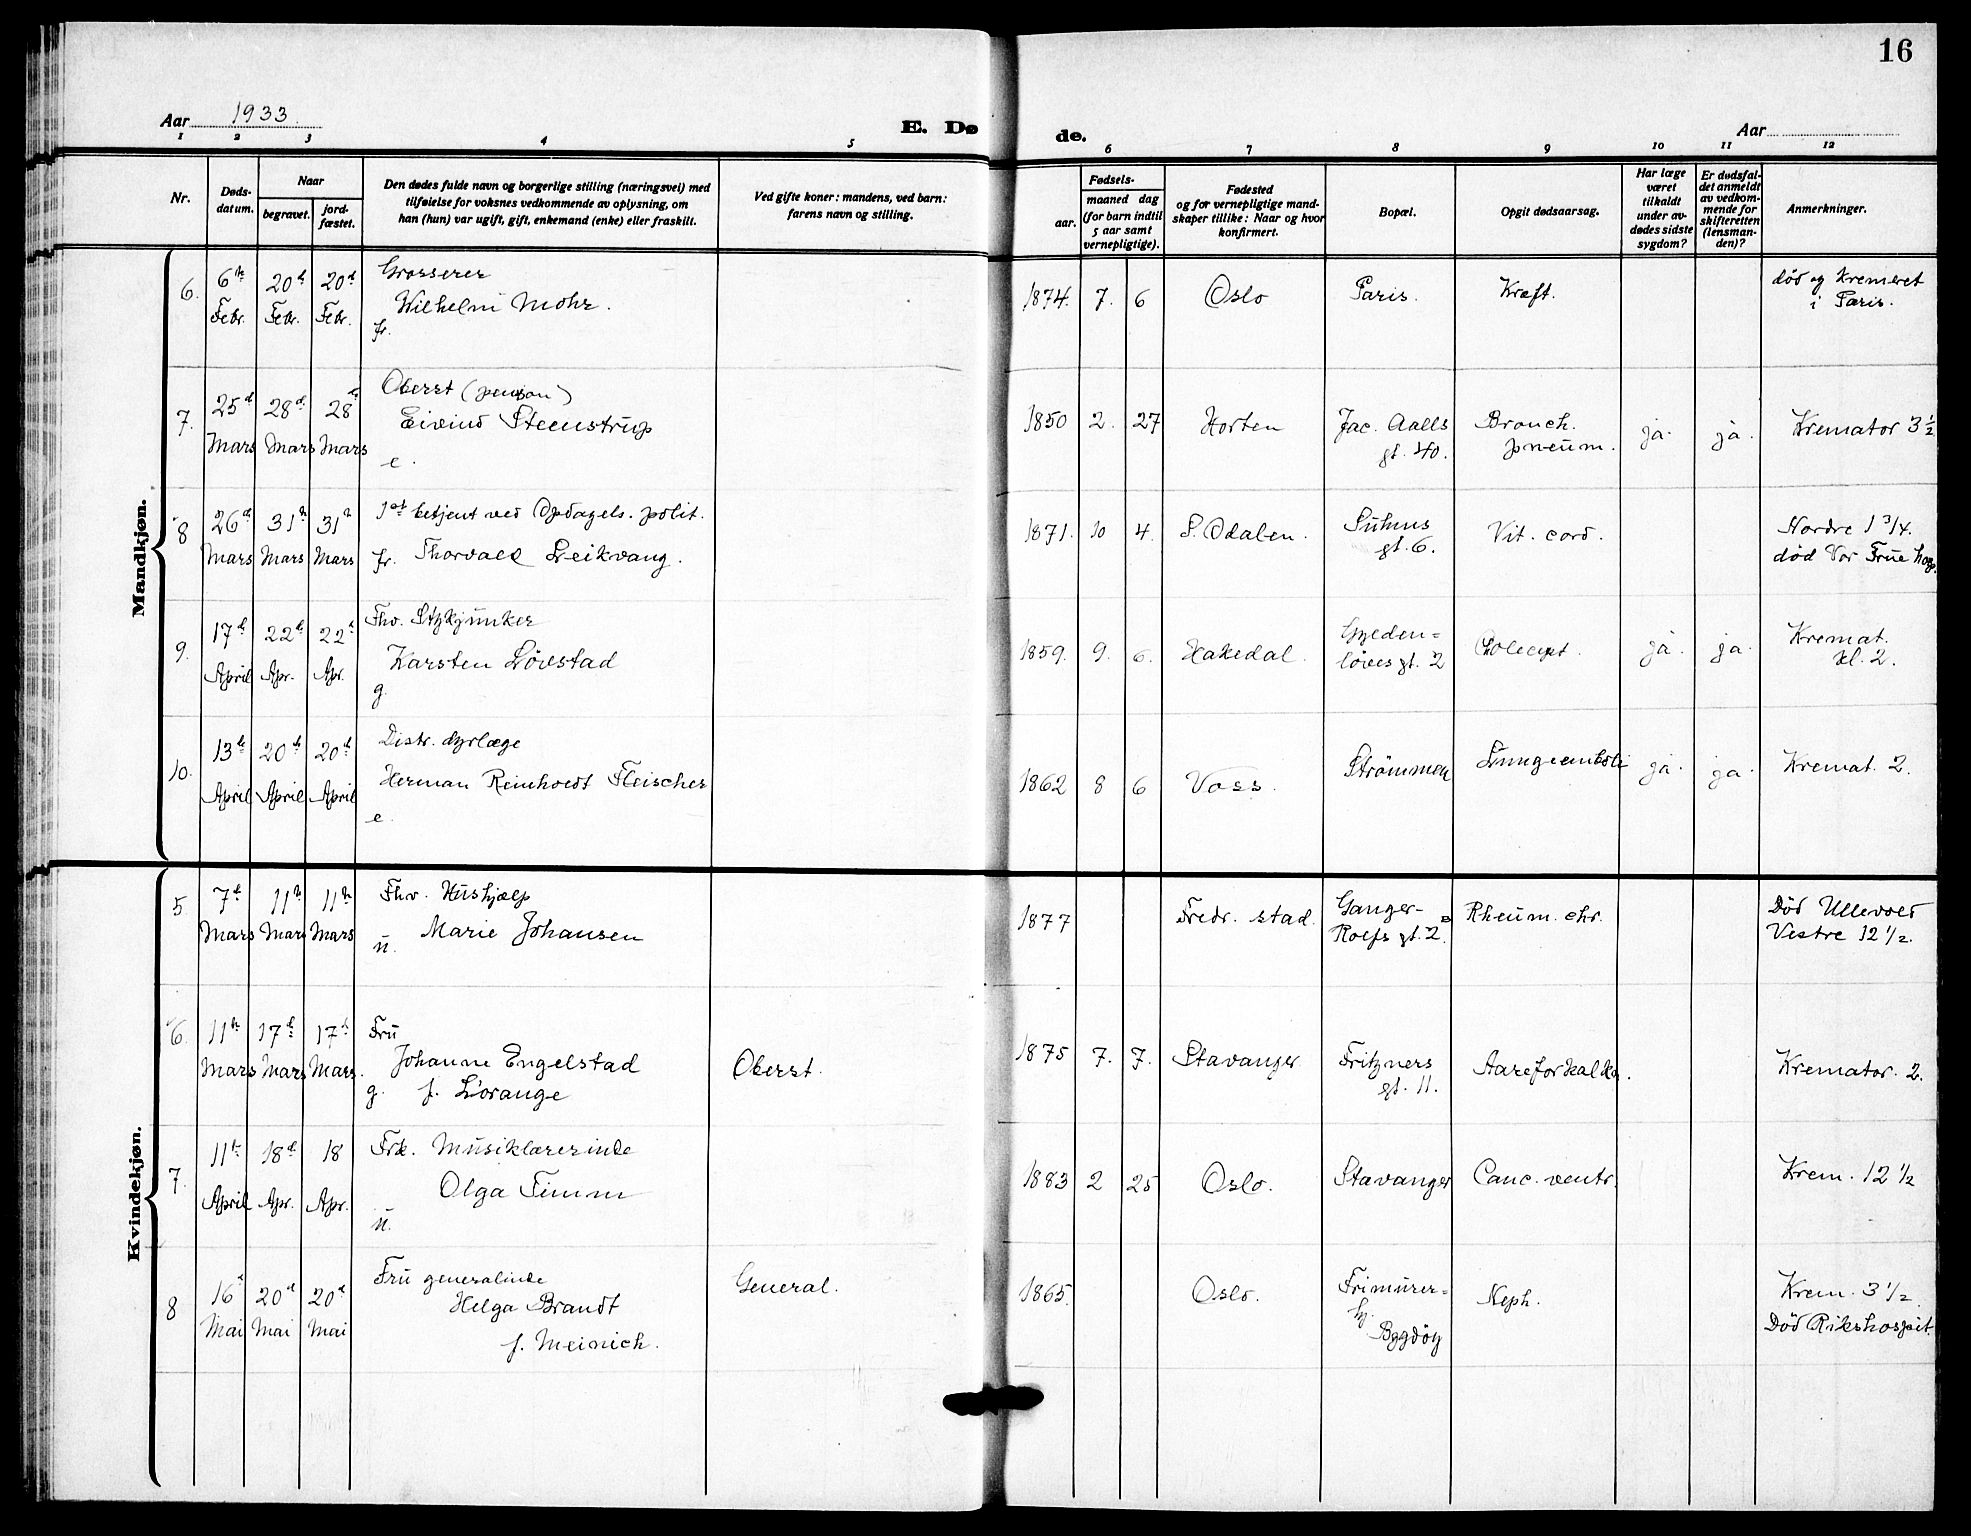 16
Aar 1933.
E. Dø
de.
Aar
1 2 3 4 5 6 7 8 9 10 11 12
Nr.
Døds-
datum.
Naar
begravet.
jord-
fæstet.
Den dødes fulde navn og borgerlige stilling (næringsvei) med
tilføielse for voksnes vedkommende av oplysning, om
han (hun) var ugift, gift, enkemand (enke) eller fraskilt.
Ved gifte koner: mandens, ved barn:
farens navn og stilling.
Fødsels-
aar.
maaned dag
(for barn indtil
5 aar samt
vernepligtige).
Fødested
og for vernepligtige mand-
skaper tillike: Naar og hvor
konfirmert.
Bopæl.
Opgit dødsaarsag.
Har læge
været
tilkaldt
under av-
dødes sidste
sygdom?
Er dødsfal-
det anmeldt
av vedkom-
mende for
skifteretten
(lensman-
den)?
Anmerkninger.
Mandkjøn.
6. 6te Febr. 20d Febr. 20d Febr.
Grosserer
Wilhelm Mohr.
fr.
1874. 7. 6 Oslo Paris. Kreft.
død og Kremeret
i Paris.
7. 25d Mars 28d Mars 28d Mars
Oberst (pension)
Eivind Steenstrup
e.
1850 2. 27 Horten
Jac. Aalls
gt. 40.
Bronch.
pneum.
ja. ja. Kremator 3 1/2
8 26d Mars 31te Mars 31te Mars
1st betjent ved Opdagels. polit.
fr. Thorvald Leikvang.
1871. 10 4. S. Odalen.
Suhms
gt. 6.
Vit. cord.
Nordre 1 3/4.
død Vor Frue hosp.
9. 17de April 22d Apr. 22d Apr.
Fhv. Stykjunker
Karsten Løvstad
g.
1859. 9. 6. Hakedal.
Gylden=
løves gt. 2
ja. ja.
Kremat.
kl. 2.
10. 13de April 20de April 20de April
Distr. dyrlæge
Herman Reinholdt Fleischer
e.
1862 8 6 Voss. Strømmen Lungeemboli ja. ja. Kremat. 2.
Kvindekjøn.
5 7d Mars 11te Mars 11te Mars
Fhv. Hushjælp
Marie Johansen
u.
1877 Fredr. stad.
Ganger-
Rolfs gt. 2.
Rheum. chr.
Død Ullevold
Vestre 12 1/2.
6 11te Mars 17de Mars 17de Mars.
Fru
Johanne Engelstad
g. f. L'orange
Oberst.
1875 7. 7. Stavanger
Fritzners
gt. 11.
Aareforkalkn.
Kremator. 2.
7. 11te April 18de Apr. 18 Apr.
Frk. Musiklærerinde
Olga Timm
u.
1883 2 25 Oslo. Stavanger Canc. ventr. Krem. 12 1/2
8 16d Mai 20d Mai 20d Mai
Fru generalinde
Helga Brandt
f. Meinich.
General.
1865. Oslo.
Frimurer=
hj.
Bygdøy
Neph.
Krem. 3 1/2.
Død Rikshospit.